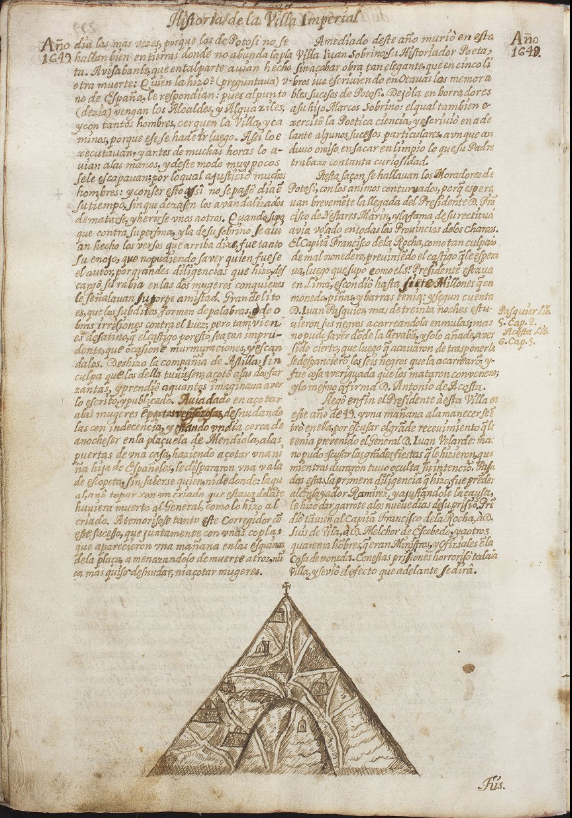 Historias de la Villa Imperial
Año
1649
dia las mas vezes, porque los de Potosi no se
hallan bien en tierras donde no abunda la pla
ta. Avisabanle que en tal parte avian hecho
otra muerte: Quien la hizo? (preguntava) v-
no de España, le respondian: pues al punto
(dezia) vengan los Alcaldes, y Alguaziles,
y con tantos hombres, cerquen la Villa, y ca
minos, porque ese se ha de ir luego. Asi lo e
xecutavan, y antes de muchas horas lo a-
vian a las manos, y de este modo muy pocos
se le escapavan: por lo qual ajusticio muchos
hombres: y con ser esto asi no se paso dia e
su tiempo, sin que dexasen los avandalizados
de matarse, y herirse vnos a otros. Quando supo
que contra su persona, y la de su sobrino, se avi-
an hecho los versos que arriba dixe, fue tanto
su enojo, que no pudiendo saver quien fuese
el autor, por grandes diligencias que hizo, des
cargó su rabia en las dos mugeres con quienes
le señalavan su torpe amistad. Gran delito
es, que los subditos formen de palabras, o de o
bras irrisiones contra el Juez; pero tambien
es desatino, q el castigo por esto sea tan impru
dente, que ocasione murmuraciones, y escan
dalos. Deshizo la compania de
culpa que los della tuviesen, açotó a las
y prendio a quantos imaginava aver
lo escrito, y publicado. Aviadado en açotar
a las mugeres desnudando
las con indecencia, y estando vn dia cerca de
anochesér en la plaçuela de Mendiola, a las
puertas de vna casa, haziendo açotar vna ni
ña hija de Españoles, le dispararon vna vala
de escopeta, sin saberse quien, ni de donde: la qu
al a no topar con vn criado que estava delante
huviera muerto al General, como lo hizo al
criado. Atemorisole tanto este Corregidor
este suceso, que juntamente con vnas coplas
que aparecieron vna mañana en las esquinas
de la plaça, amenazandolo de muerte atroz, nu
ca mas quiso desnudar, ni açotar mugeres.
Año
1649.
A mediado deste año murió en esta
Villa Juan Sobrino su Historiador Poeta,
sin acabar obra tan elegante, que en cinco li
bros iva escriviendo en Octavas los memora
bles sucesos de Potosi. Dexóla en borradores
a su hijo Marcos Sobrino: el qual tambien e-
xercitó la Poetica ciencia, y escrivio en ade
lante algunos sucesos particulares, aunque an
duvo omiso en sacar en limpio lo que su Padre
trabaxó con tanta curiosidad.
En esta saçon se hallavan los Moradores de
Potosi, con los animos conturvados, porq espera
van brevemente la llegada del Presidente D. Fra
cisco de Nestares Marin, y la fama de su rectitud
avia velado en todas las Provincias de los Charcas.
El Capitā Francisco de la Rocha, como tan culpado
de mal monedero, previniendo el castigo q le espera
va, luego que supo como el Sr. Presidente estava
en Lima, escondio hasta siete Millones q en
moneda, piñas, y barras tenia; y segun cuenta
D. Juan Pasquier, mas de treinta noches estu-
vieron sus negros acarreandola en mulas; mas
no pudo saver donde la llevavan, y solo añade, aver
sido cierto, que luego q acavaron de trasponerla
se desparecieron los seis negros que la acarrearon, y
fue cosa averiguada que los mataron con veneno,
y lo mesmo afirma D. Antonio de Acosta.
Pasquier Lib.
5. Cap. 1.
Acosta Lib.
6. Cap. 5.
Llegó en fin el Presidente a esta Villa en
este año de 49. y vna mañana al amanecer se en
tró en ella, por escusar el grāde recevimiento q le
tenia prevenido el General D. Juan Velarde: ma
no pudo escusar las grādes fiestas q le hizieron, que
mientras duraron tuvo oculta su intencion. Pasa
das estas, la primera diligencia q hizo, fue prēder
al Ensayador Ramirez, y ajustandole la causa,
le hizo dar garrote a los nueve dias de su prisiō. Prē
dió tāvien al Capitā Francisco de la Rocha, a D.
Luis de Vila, a D. Melchor de Escobedo, y a otros
quarenta hōbres, q eran Ministros, y oficiales de la
Casa de moneda. Con estas prisiones horrorisó toda la
Villa, y se vió de efecto que adelante se dirá.
Fūs.